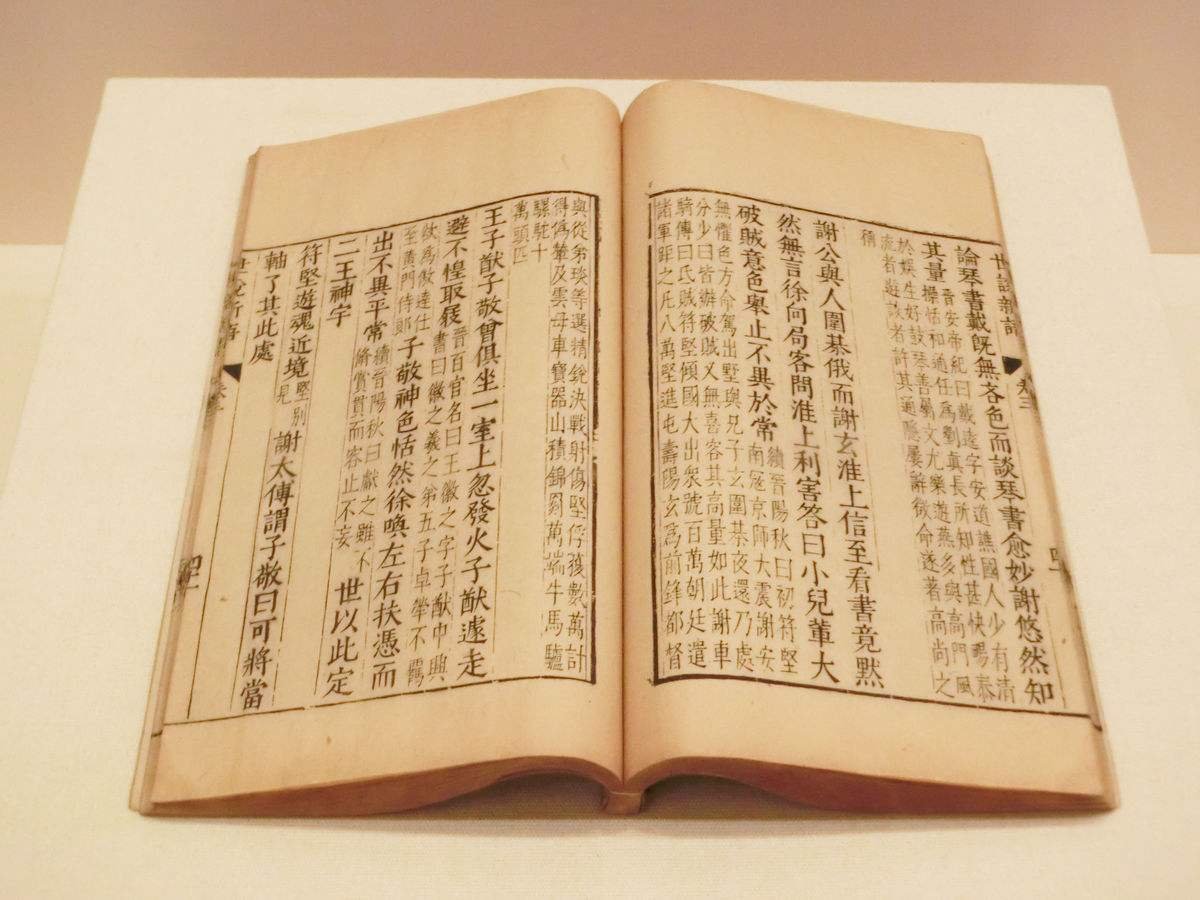 世說新語 卷三 四
論琴書戴既無吝色而談琴書愈妙謝悠然知
其量
晉安帝紀曰戴逵字安道譙國人少有清
操恬和通任為劉真長所知性甚快暢泰
於娛生好鼓琴善屬文尤樂遊燕多與高門風
流者遊談者許其通隱屢辭徵命遂著高尚之
稱
謝公與人圍棊俄而謝玄淮上信至看書竟默
然無言徐向局客問淮上利害答曰小兒輩大
破賊意色舉止不異於常
續晉陽秋曰初符堅
南寇京師大震謝安
無懼色方命駕出墅與兄子玄圍棊夜還乃處
分少日皆辦破賊又無喜容其高量如此謝車
騎傳曰氐賊符堅傾國大出衆號百萬朝廷遣
諸軍距之凡八萬堅進屯壽陽玄為前鋒都督
與從弟琰等選精銳決戰射傷堅俘獲數萬計
得偽輦及雲母車寶器山積錦罽萬端牛馬驢
騾駝十
萬頭匹
王子猷子敬曾俱坐一室上忽發火子猷遽走
避不惶取屐
晉百官名曰王徽之字子猷中興
書曰徽之羲之第五子卓犖不羈
欲為傲達仕
至黃門侍郎
子敬神色恬然徐喚左右扶憑而
出不異平常
續晉陽秋曰獻之雖不
脩賞貫而容止不妄
世以此定
二王神宇
符堅遊魂近境
堅別
見
謝太傅謂子敬曰可將當
軸了其此處
世說新語